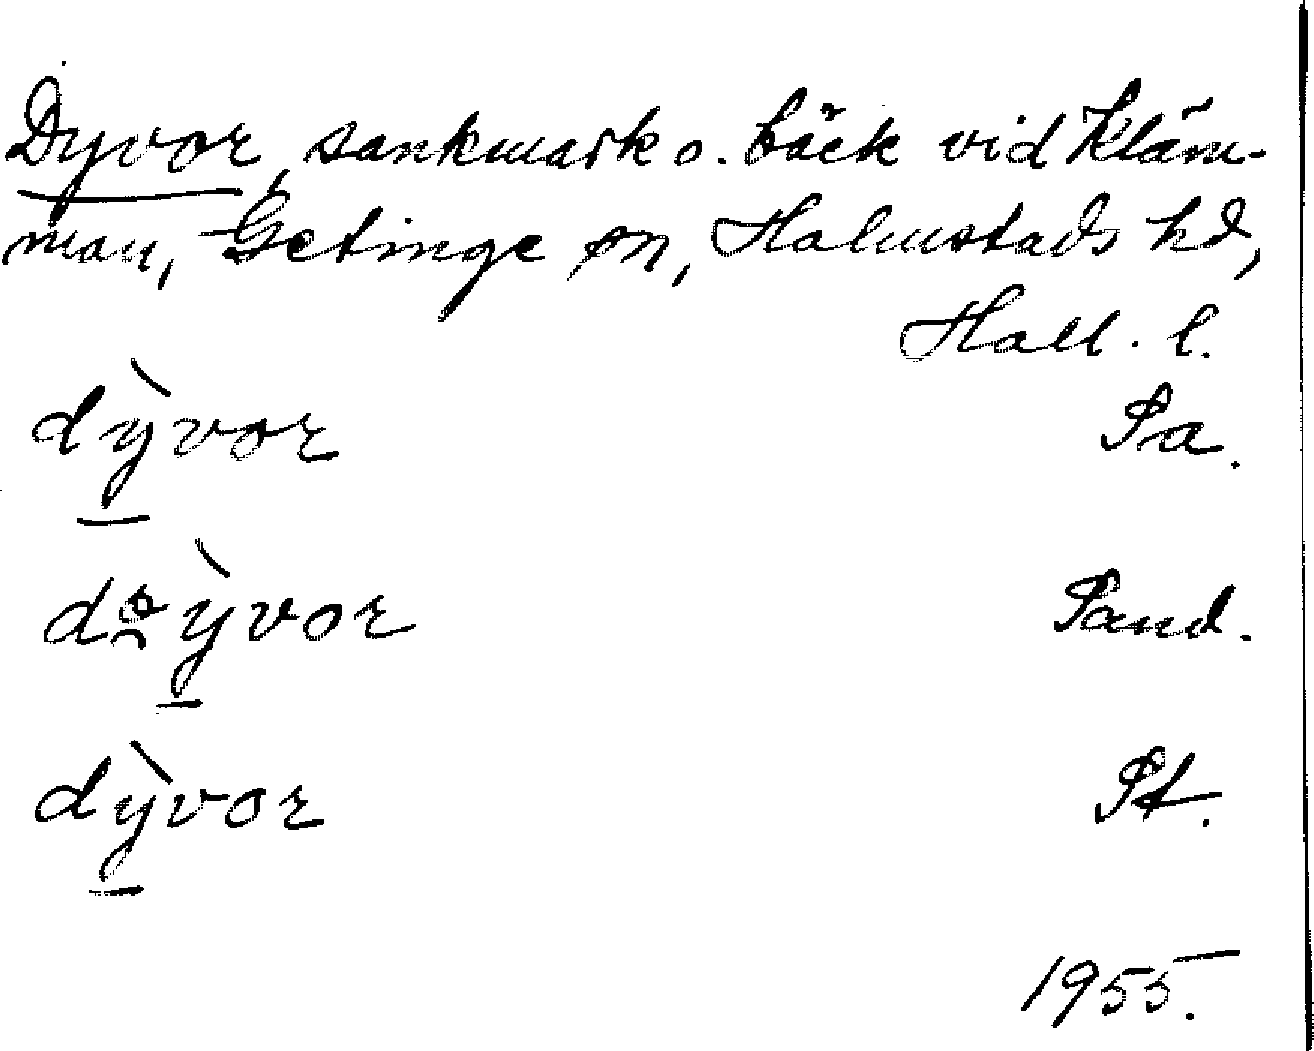 Dyvor, sankmark o. bäck vid Kläm-
man, Getinge sn, Halmstads hd,
Hall. l.
dỳvor Pa.
dỳvor Pand.
dỳvor Pt.
1955.